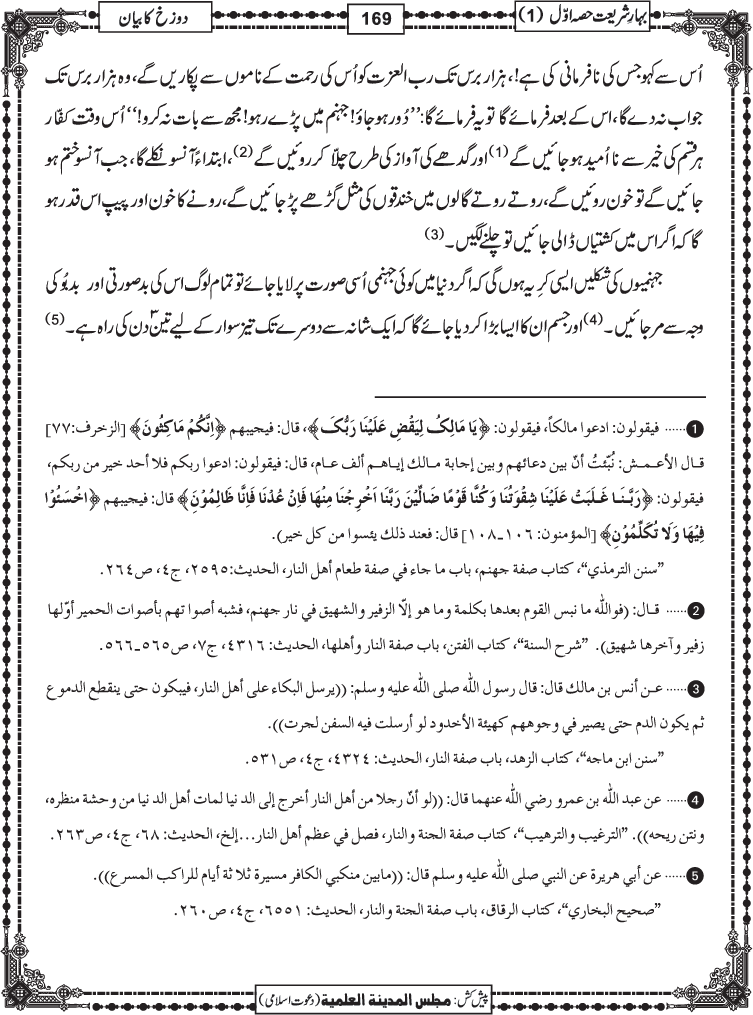 بہارِ شریعت حصہ اوّل (1)
169
دوزخ کا بیان
اُس سے کہو جس کی نافرمانی کی ہے!، ہزار برس تک رب العزت کو اُس کی رحمت کے ناموں سے پکاریں گے، وہ ہزار برس تک
جواب نہ دے گا، اس کے بعد فرمائے گا تو یہ فرمائے گا: ’’دُور ہوجاؤ! جہنم میں پڑے رہو! مجھ سے بات نہ کرو!‘‘ اُس وقت کفّار
ہر قسم کی خیر سے نا اُمید ہوجائیں گے (1) اور گدھے کی آواز کی طرح چلّا کر روئیں گے (2)، ابتداءً آنسو نکلے گا، جب آنسو ختم ہو
جائیں گے تو خون روئیں گے، روتے روتے گالوں میں خندقوں کی مثل گڑھے پڑ جائیں گے، رونے کا خون اور پیپ اس قدر ہو
گا کہ اگر اس میں کشتیاں ڈالی جائیں تو چلنے لگیں۔ (3)
جہنمیوں کی شکلیں ایسی کرِیہ ہوں گی کہ اگر دنیا میں کوئی جہنمی اُسی صورت پر لایا جائے تو تمام لوگ اس کی بدصورتی اور بدبُو کی
وجہ سے مرجائیں۔ (4) اور جسم ان کا ایسا بڑا کردیا جائے گا کہ ایک شانہ سے دوسرے تک تیز سوار کے لیے تین۳ دن کی راہ ہے۔ (5)
1 ...... فيقولون: ادعوا مالكاً، فيقولون: ﴿يَا مَالِكُ لِيَقْضِ عَلَيْنَا رَبُّكَ﴾، قال: فيجيبهم ﴿اِنَّكُمْ مَاكِثُونَ﴾ [الزخرف:۷۷]
قال الأعمش: نُبِّئتُ أنّ بين دعائهم وبين إجابة مالك إياهم ألف عام، قال: فيقولون: ادعوا ربكم فلا أحد خير من ربكم،
فيقولون: ﴿رَبَّنَا غَلَبَتْ عَلَيْنَا شِقْوَتُنَا وَكُنَّا قَوْمًا ضَالِّيْنَ رَبَّنَا اَخْرِجْنَا مِنْهَا فَاِنْ عُدْنَا فَاِنَّا ظَالِمُوْنَ﴾ قال: فيجيبهم ﴿اخْسَئُوْا
فِيْهَا وَلَا تُكَلِّمُوْنِ﴾ [المؤمنون: ۱۰۶-۱۰۸] قال: فعند ذلك يئسوا من كل خير).
”سنن الترمذي“، كتاب صفة جهنم، باب ما جاء في صفة طعام أهل النار، الحديث:۲۵۹۵، ج٤، ص۲٦٤.
2 ...... قال: (فوالله ما نبس القوم بعدها بكلمة وما هو إلّا الزفير والشهيق في نار جهنم، فشبه أصوا تهم بأصوات الحمير أوّلها
زفير وآخرها شهيق). ”شرح السنة“، كتاب الفتن، باب صفة النار وأهلها، الحديث: ٤۳۱٦، ج۷، ص٥٦٥-٥٦٦.
3 ...... عن أنس بن مالك قال: قال رسول الله صلى الله عليه وسلم: ((يرسل البكاء على أهل النار، فيبكون حتى ينقطع الدموع
ثم يكون الدم حتى يصير في وجوههم كهيئة الأخدود لو أرسلت فيه السفن لجرت)).
”سنن ابن ماجه“، كتاب الزهد، باب صفة النار، الحديث: ٤۳۲٤، ج٤، ص٥۳۱.
4 ...... عن عبد الله بن عمرو رضي الله عنهما قال: ((لو أنّ رجلا من أهل النار أخرج إلى الد نيا لمات أهل الد نيا من وحشة منظره،
ونتن ريحه)). ”الترغيب والترهيب“، كتاب صفة الجنة والنار، فصل في عظم أهل النار...إلخ، الحديث: ٦۸، ج٤، ص۲٦۳.
5 ...... عن أبي هريرة عن النبي صلى الله عليه وسلم قال: ((مابين منكبي الكافر مسيرة ثلا ثة أيام للراكب المسرع)).
”صحيح البخاري“، كتاب الرقاق، باب صفة الجنة والنار، الحديث: ٦٥٥۱، ج٤، ص۲٦۰.
پیش کش: مجلس المدینۃ العلمیۃ (دعوت اسلامی)